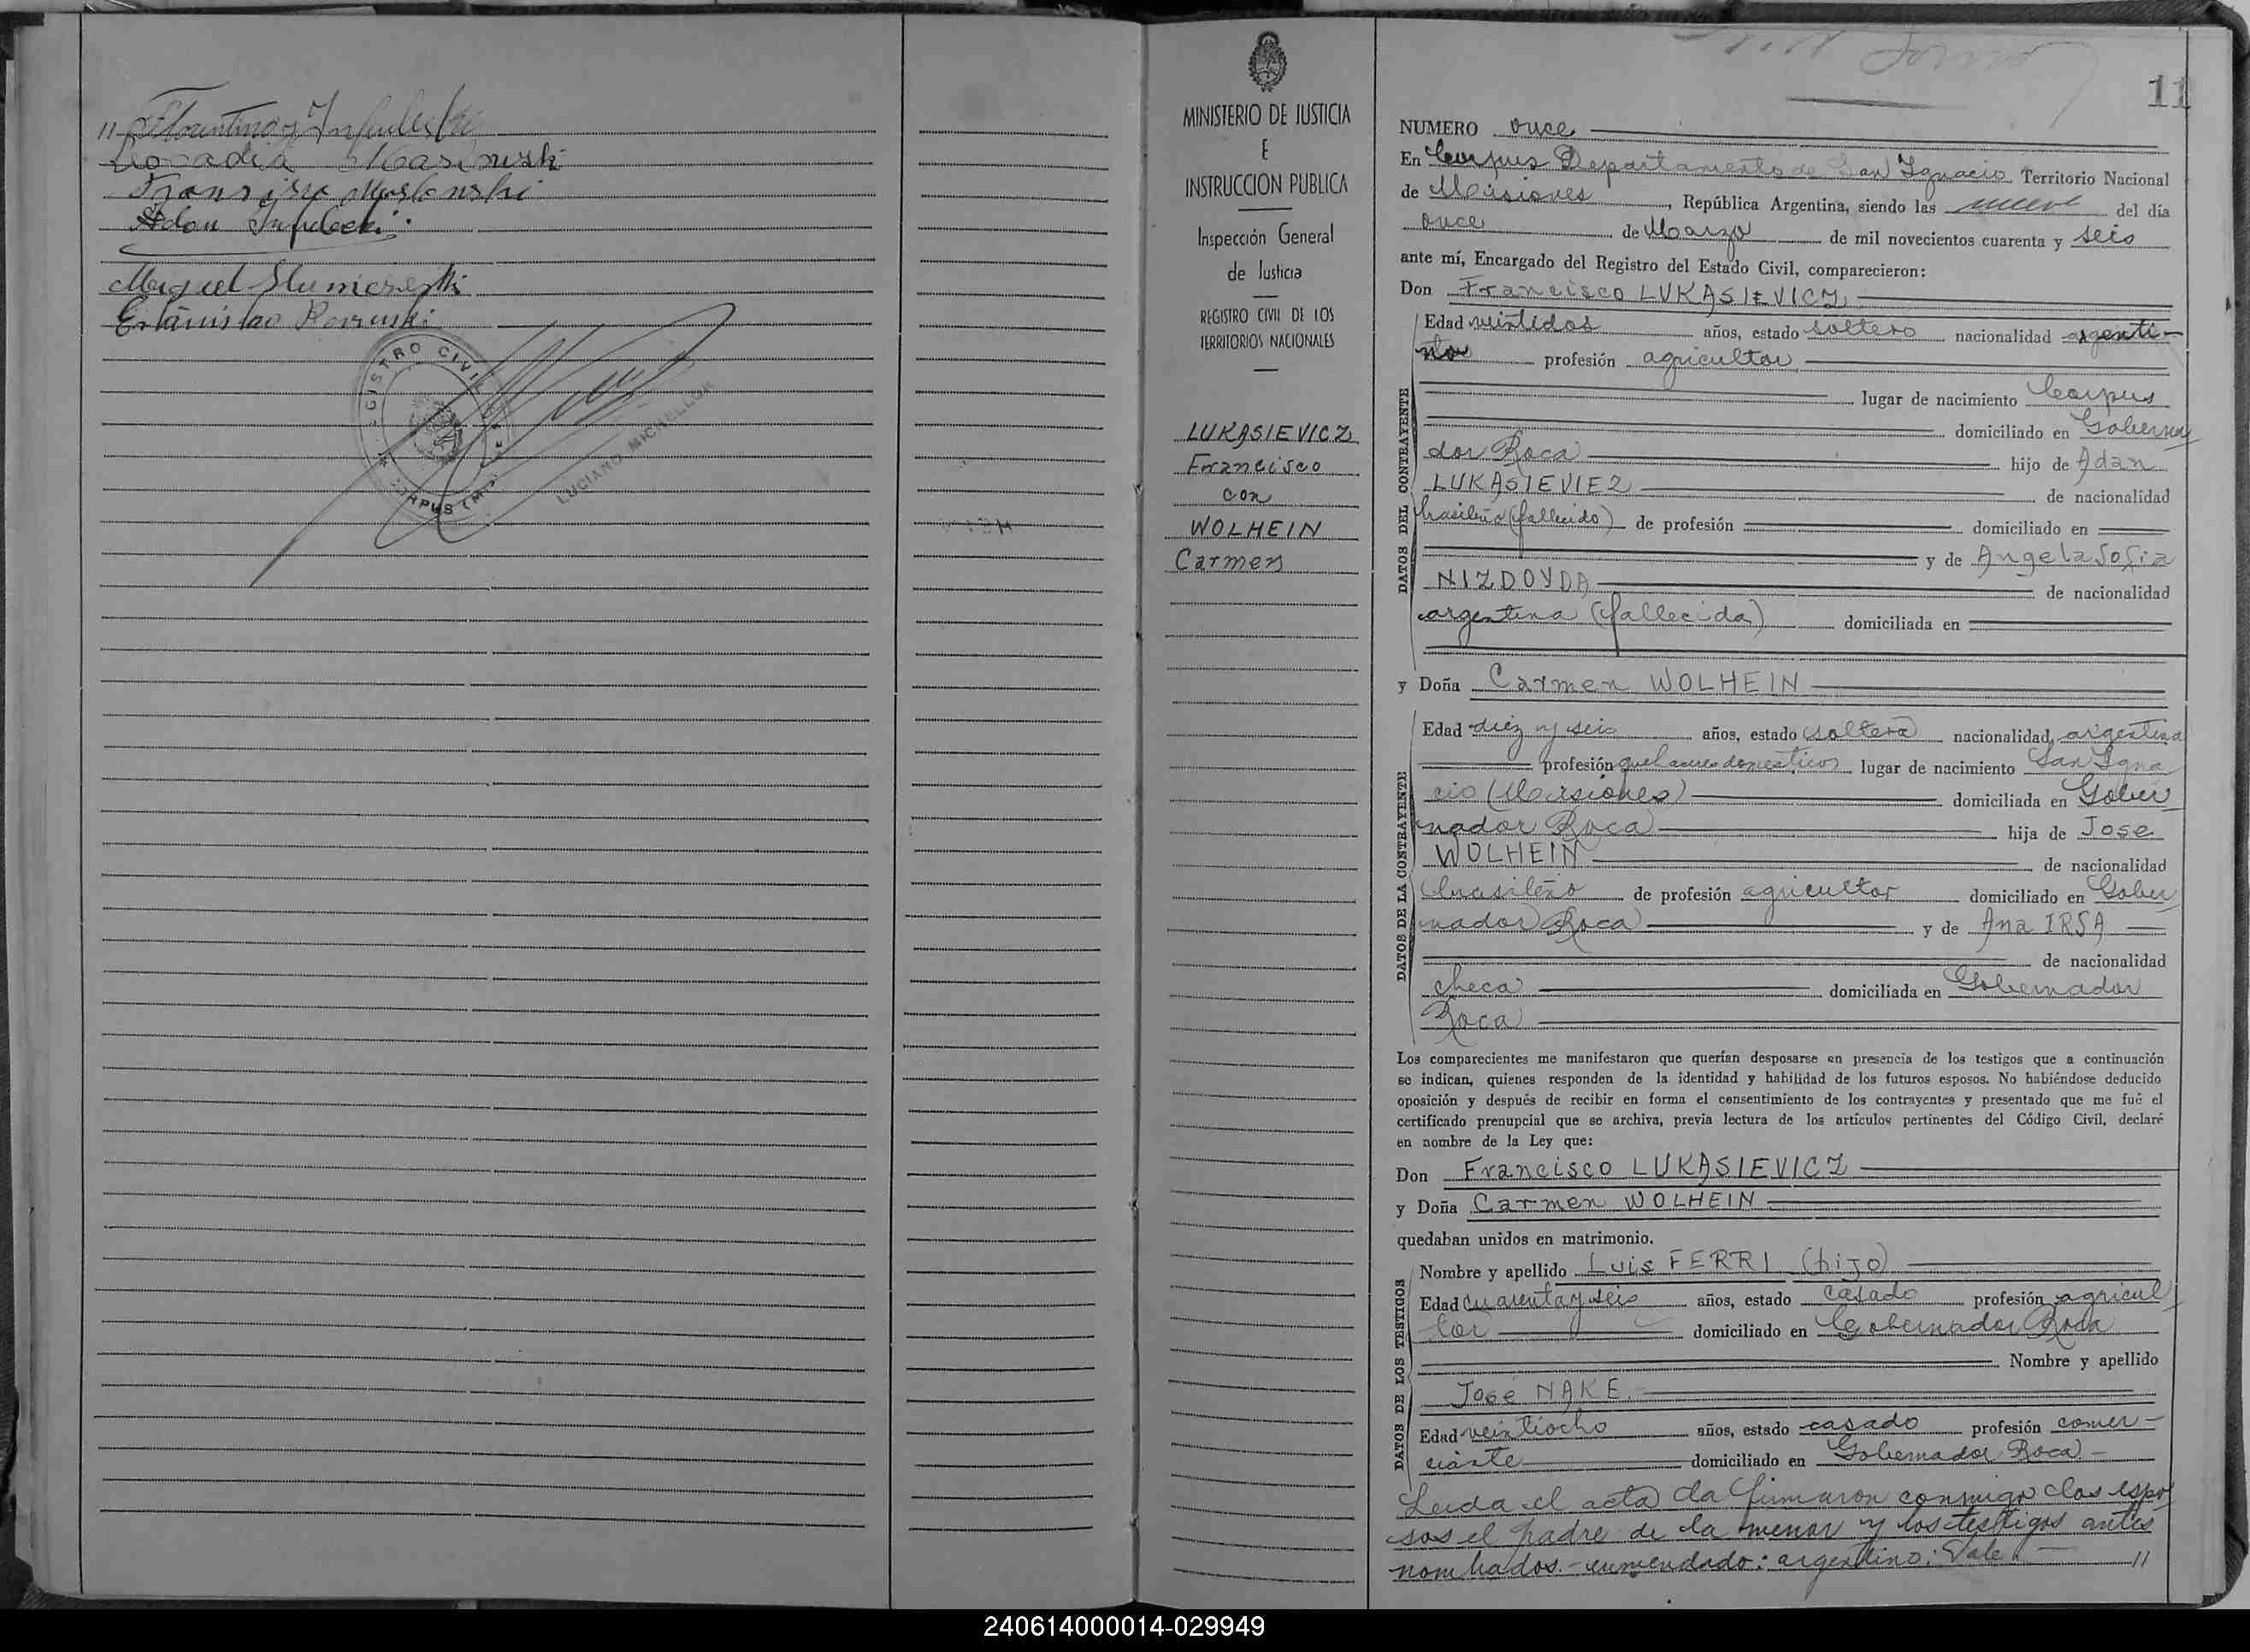 11
Florentino Infuleski
Leocadia Maslowski
Adan Infuleski
Miguel Slumczeski
Estanislao
REGISTRO CIVIL
CORPUS (M
LUCIANO MICHELLON
MINISTERIO DE JUSTICIA
E
INSTRUCCION PUBLICA
Inspección General
de Justicia
REGISTRO CIVIL DE LOS
TERRITORIOS NACIONALES
LUKASIEVICZ
Francisco
con
WOLHEIN
Carmen
11
NUMERO once
En Corpus Departamento de San Ignacio Territorio Nacional
de Misiones, República Argentina, siendo las nueve del día
once de Marzo de mil novecientos cuarenta y seis
ante mí, Encargado del Registro del Estado Civil, comparecieron:
Don Francisco LUKASIEVICZ
DATOS DEL CONTRAYENTE
Edad veintidos años, estado soltero nacionalidad argenti-
no profesión agricultor
lugar de nacimiento Corpus
domiciliado en Goberna
dor Roca hijo de Adan
LUKASIEVIEZ de nacionalidad
brasileño (fallecido) de profesión domiciliado en
y de Angela Sofia
NIZDOYDA de nacionalidad
argentina (fallecida) domiciliada en
y Doña Carmen WOLHEIN
DATOS DE LA CONTRAYENTE
Edad diez y seis años, estado soltera nacionalidad argentina
profesión quehaceres domesticos lugar de nacimiento San Igna
cio (Misiones) domiciliada en Gober
nador Roca hija de Jose
WOLHEIN de nacionalidad
brasileño de profesión agricultor domiciliado en Gober
nador Roca y de Ana IRSA
de nacionalidad
checa domiciliada en Gobernador
Roca
Los comparecientes me manifestaron que querían desposarse en presencia de los testigos que a continuación
se indican, quienes responden de la identidad y habilidad de los futuros esposos. No habiéndose deducido
oposición y después de recibir en forma el consentimiento de los contrayentes y presentado que me fué el
certificado prenupcial que se archiva, previa lectura de los artículos pertinentes del Código Civil, declaré
en nombre de la Ley que:
Don Francisco LUKASIEVICZ
y Doña Carmen WOLHEIN
quedaban unidos en matrimonio.
DATOS DE LOS TESTIGOS
Nombre y apellido Luis FERRI (hijo)
Edad cuarenta y seis años, estado casado profesión agricul
tor domiciliado en Gobernador Roca
Nombre y apellido
José NAKE.
Edad veintiocho años, estado casado profesión comer-
ciante domiciliado en Gobernador Roca -
Leida el acta la firmaron conmigo los espo
sos el padre de la menor y los testigos antes
nombrados.- enmendado: argentino: Vale. - 11
240614000014-029949